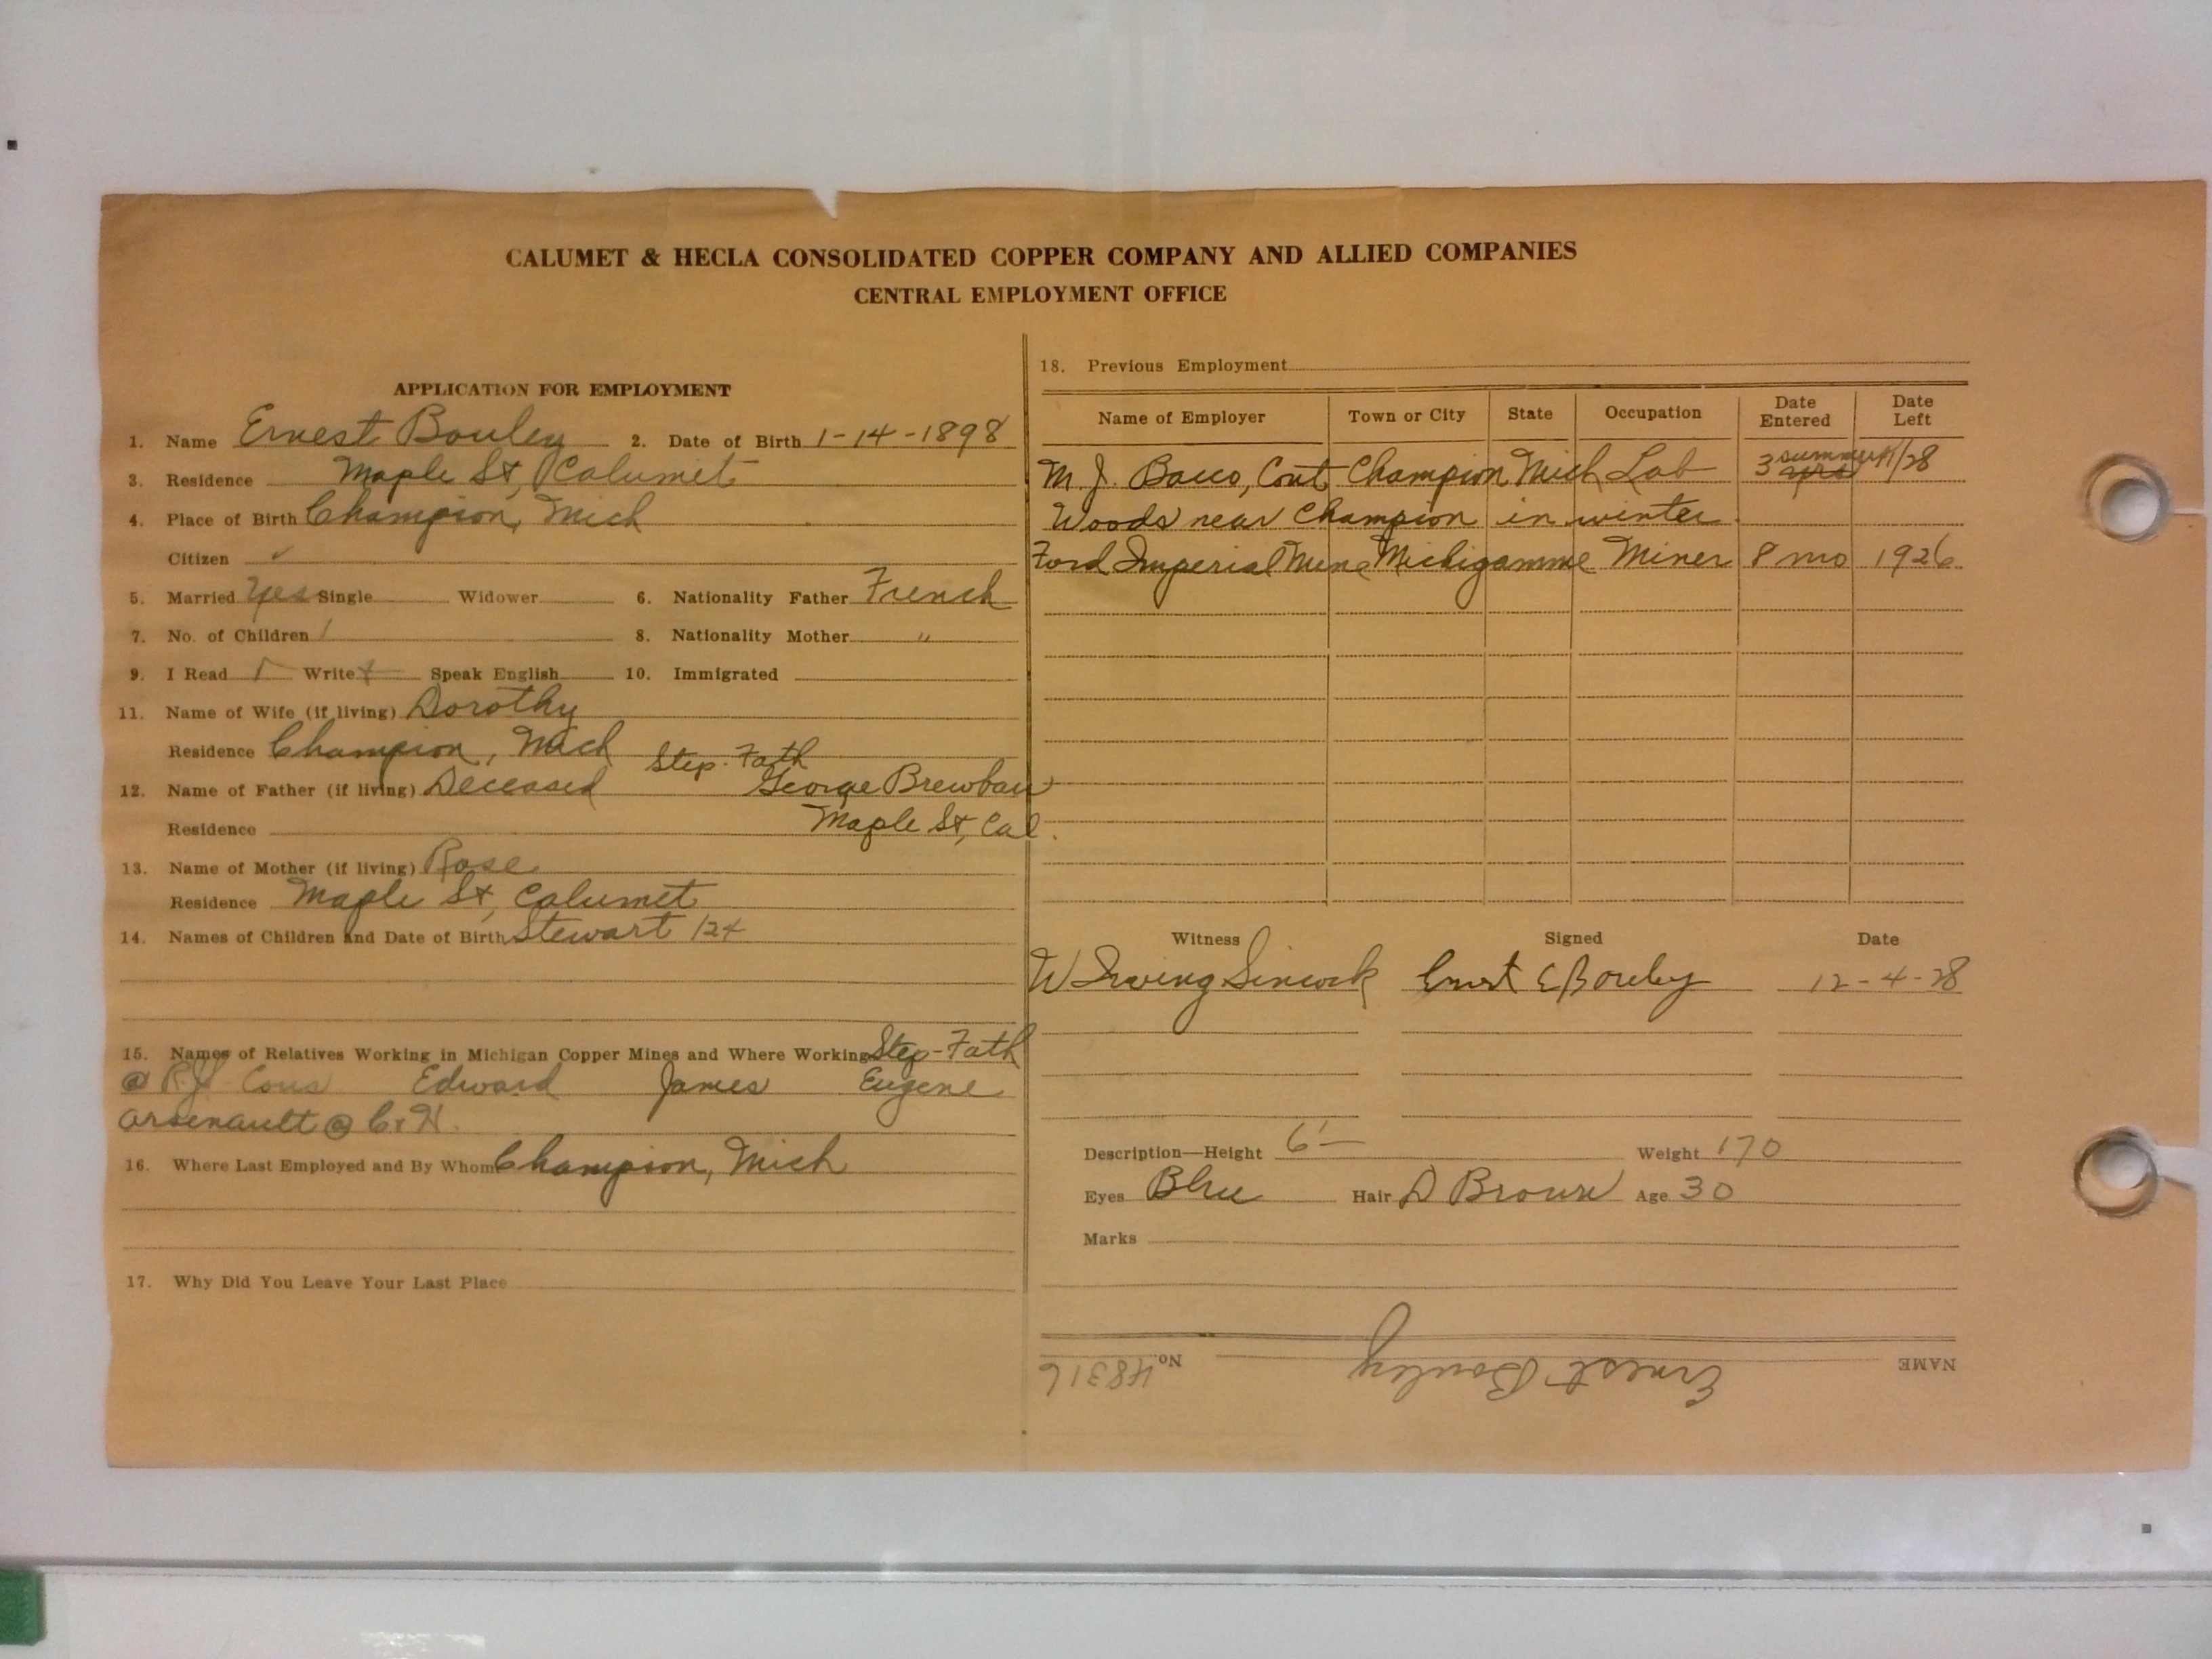 CALUMET & HECLA CONSOLIDATED COPPER COMPANY AND ALLIED COMPANIES
CENTRAL EMPLOYMENT OFFICE
APPLICATION FOR EMPLOYMENT
1. Name Ernest Bouley 2. Date of Birth 1-14-1898
3. Residence Maple St, Calumet
4. Place of Birth Champion, Mich
Citizen ✓
5. Married Yes Single Widower 6. Nationality Father French
7. No. of Children 1 8. Nationality Mother "
9. I Read Write Speak English 10. Immigrated
11. Name of Wife (if living) Dorothy
Residence Champion, Mich
Step-Fath
12. Name of Father (if living) Deceased George
Residence Maple St, Cal.
13. Name of Mother (if living) Rose
Residence Maple St, Calumet
14. Names of Children and Date of Birth Stewart 124
15. Names of Relatives Working in Michigan Copper Mines and Where Working Step-Fath
@ Cons Edward James Eugene
Arsenault @ C&H.
16. Where Last Employed and By Whom Champion, Mich
17. Why Did You Leave Your Last Place
18. Previous Employment
Name of Employer Town or City State Occupation Date Entered Date Left
M. J. Bacco, Cont Champion Mich Lab 3 summers yrs 11/28
Woods near Champion in winter.
Ford Imperial Mine Michigamme Miner 8 mo 1926
Witness Signed Date
W Irving Sincock Ernest E Bouley 12-4-28
Description—Height 6' Weight 170
Eyes Blue Hair D Brown Age 30
Marks
NAME Ernest Bouley No. 48316